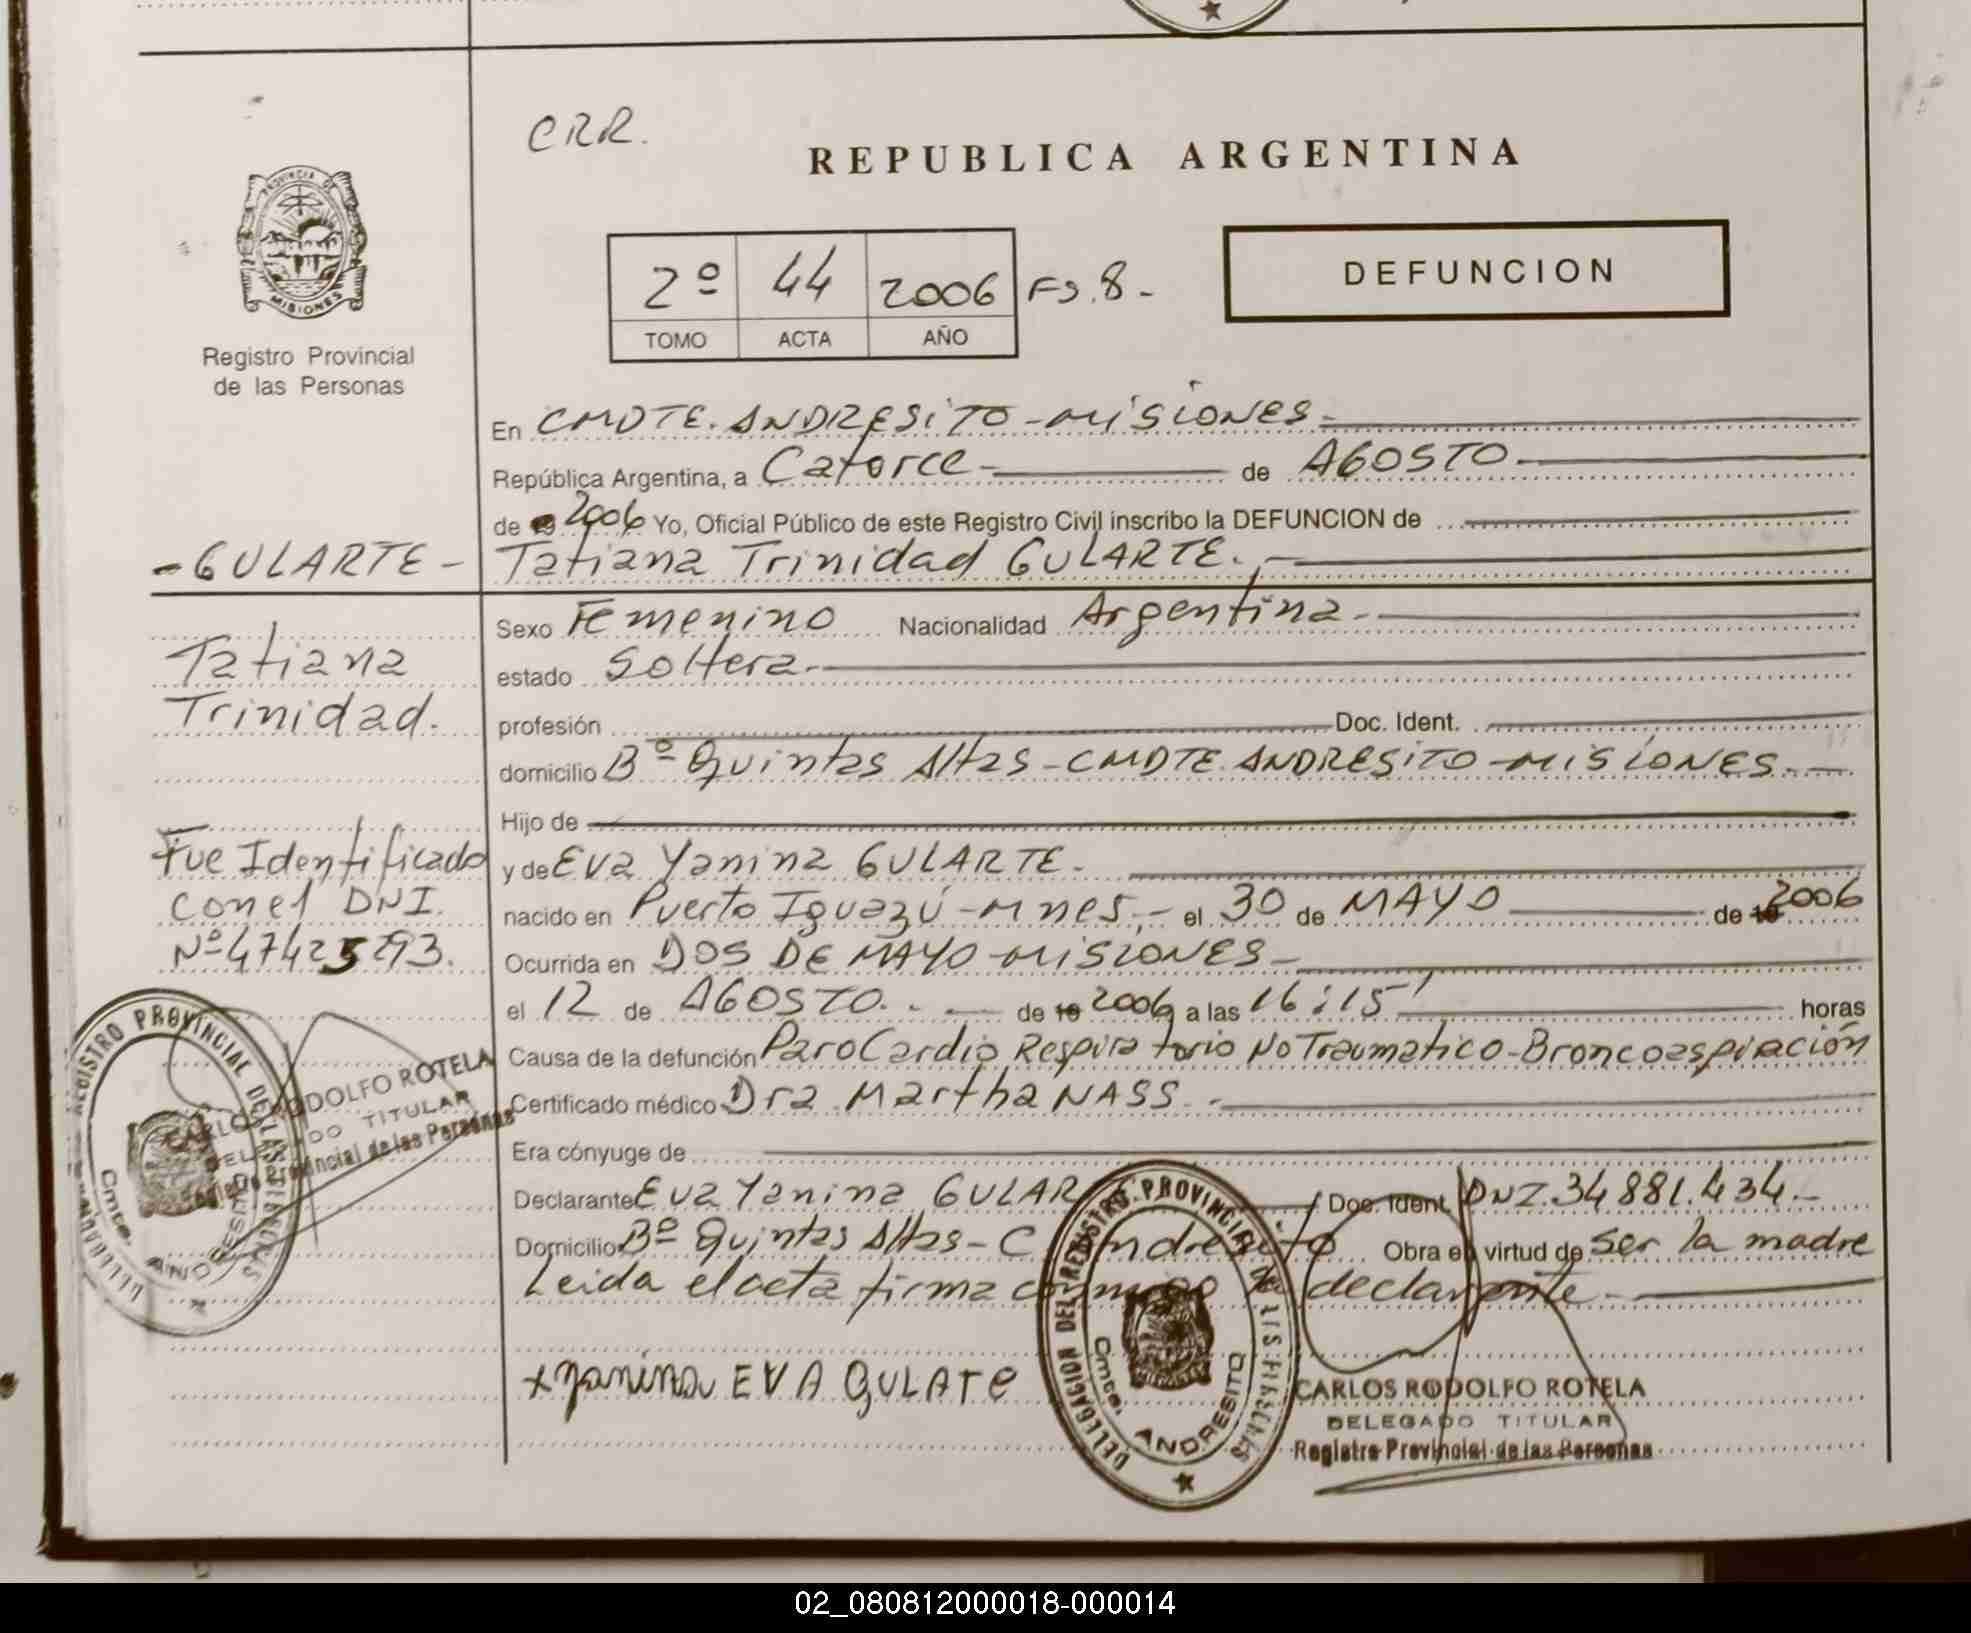 CRR.
REPUBLICA ARGENTINA
PROVINCIA DE
MISIONES
Registro Provincial
de las Personas
2º 44 2006 Fs.8.-
TOMO ACTA AÑO
DEFUNCION
En CMDTE. ANDRESITO-MISIONES.-
República Argentina, a Catorce.- de AGOSTO
de 2006 Yo, Oficial Público de este Registro Civil inscribo la DEFUNCION de
-GULARTE- Tatiana Trinidad GULARTE.-
Sexo Femenino Nacionalidad Argentina.-
Tatiana
estado Soltera.-
Trinidad.
profesión Doc. Ident.
domicilio Bº Quintas Altas-CMDTE. ANDRESITO-MISIONES.-
Hijo de
Fue Identificado
y de Eva Yanina GULARTE.-
con el DNI.
nacido en Puerto Iguazú-Mnes.- el 30 de MAYO de 2006
Nº 47425293.
Ocurrida en DOS DE MAYO-MISIONES-
el 12 de AGOSTO.- de 19 2006 a las 16:15' horas
Causa de la defunción Paro Cardio Respiratorio No Traumatico-Broncoaspiración
Certificado médico Dra. Martha NASS.-
Era cónyuge de
Declarante Eva Yanina GULAR Doc. Ident. DNI.34.881.434.-
Domicilio Bº Quintas Altas-C. Andresito Obra en virtud de ser la madre
Leida el acta firma conmigo la declarante.-
x Yanina EVA GULATe
CARLOS RODOLFO ROTELA
DELEGADO TITULAR
Registro Provincial de las Personas
DELEGACION DEL REGISTRO PROVINCIAL DE LAS PERSONAS
Cmte. ANDRESITO
CARLOS RODOLFO ROTELA
DELEGADO TITULAR
Registro Provincial de las Personas
REGISTRO PROVINCIAL DE LAS PERSONAS
Cmte. ANDRESITO
02_080812000018-000014